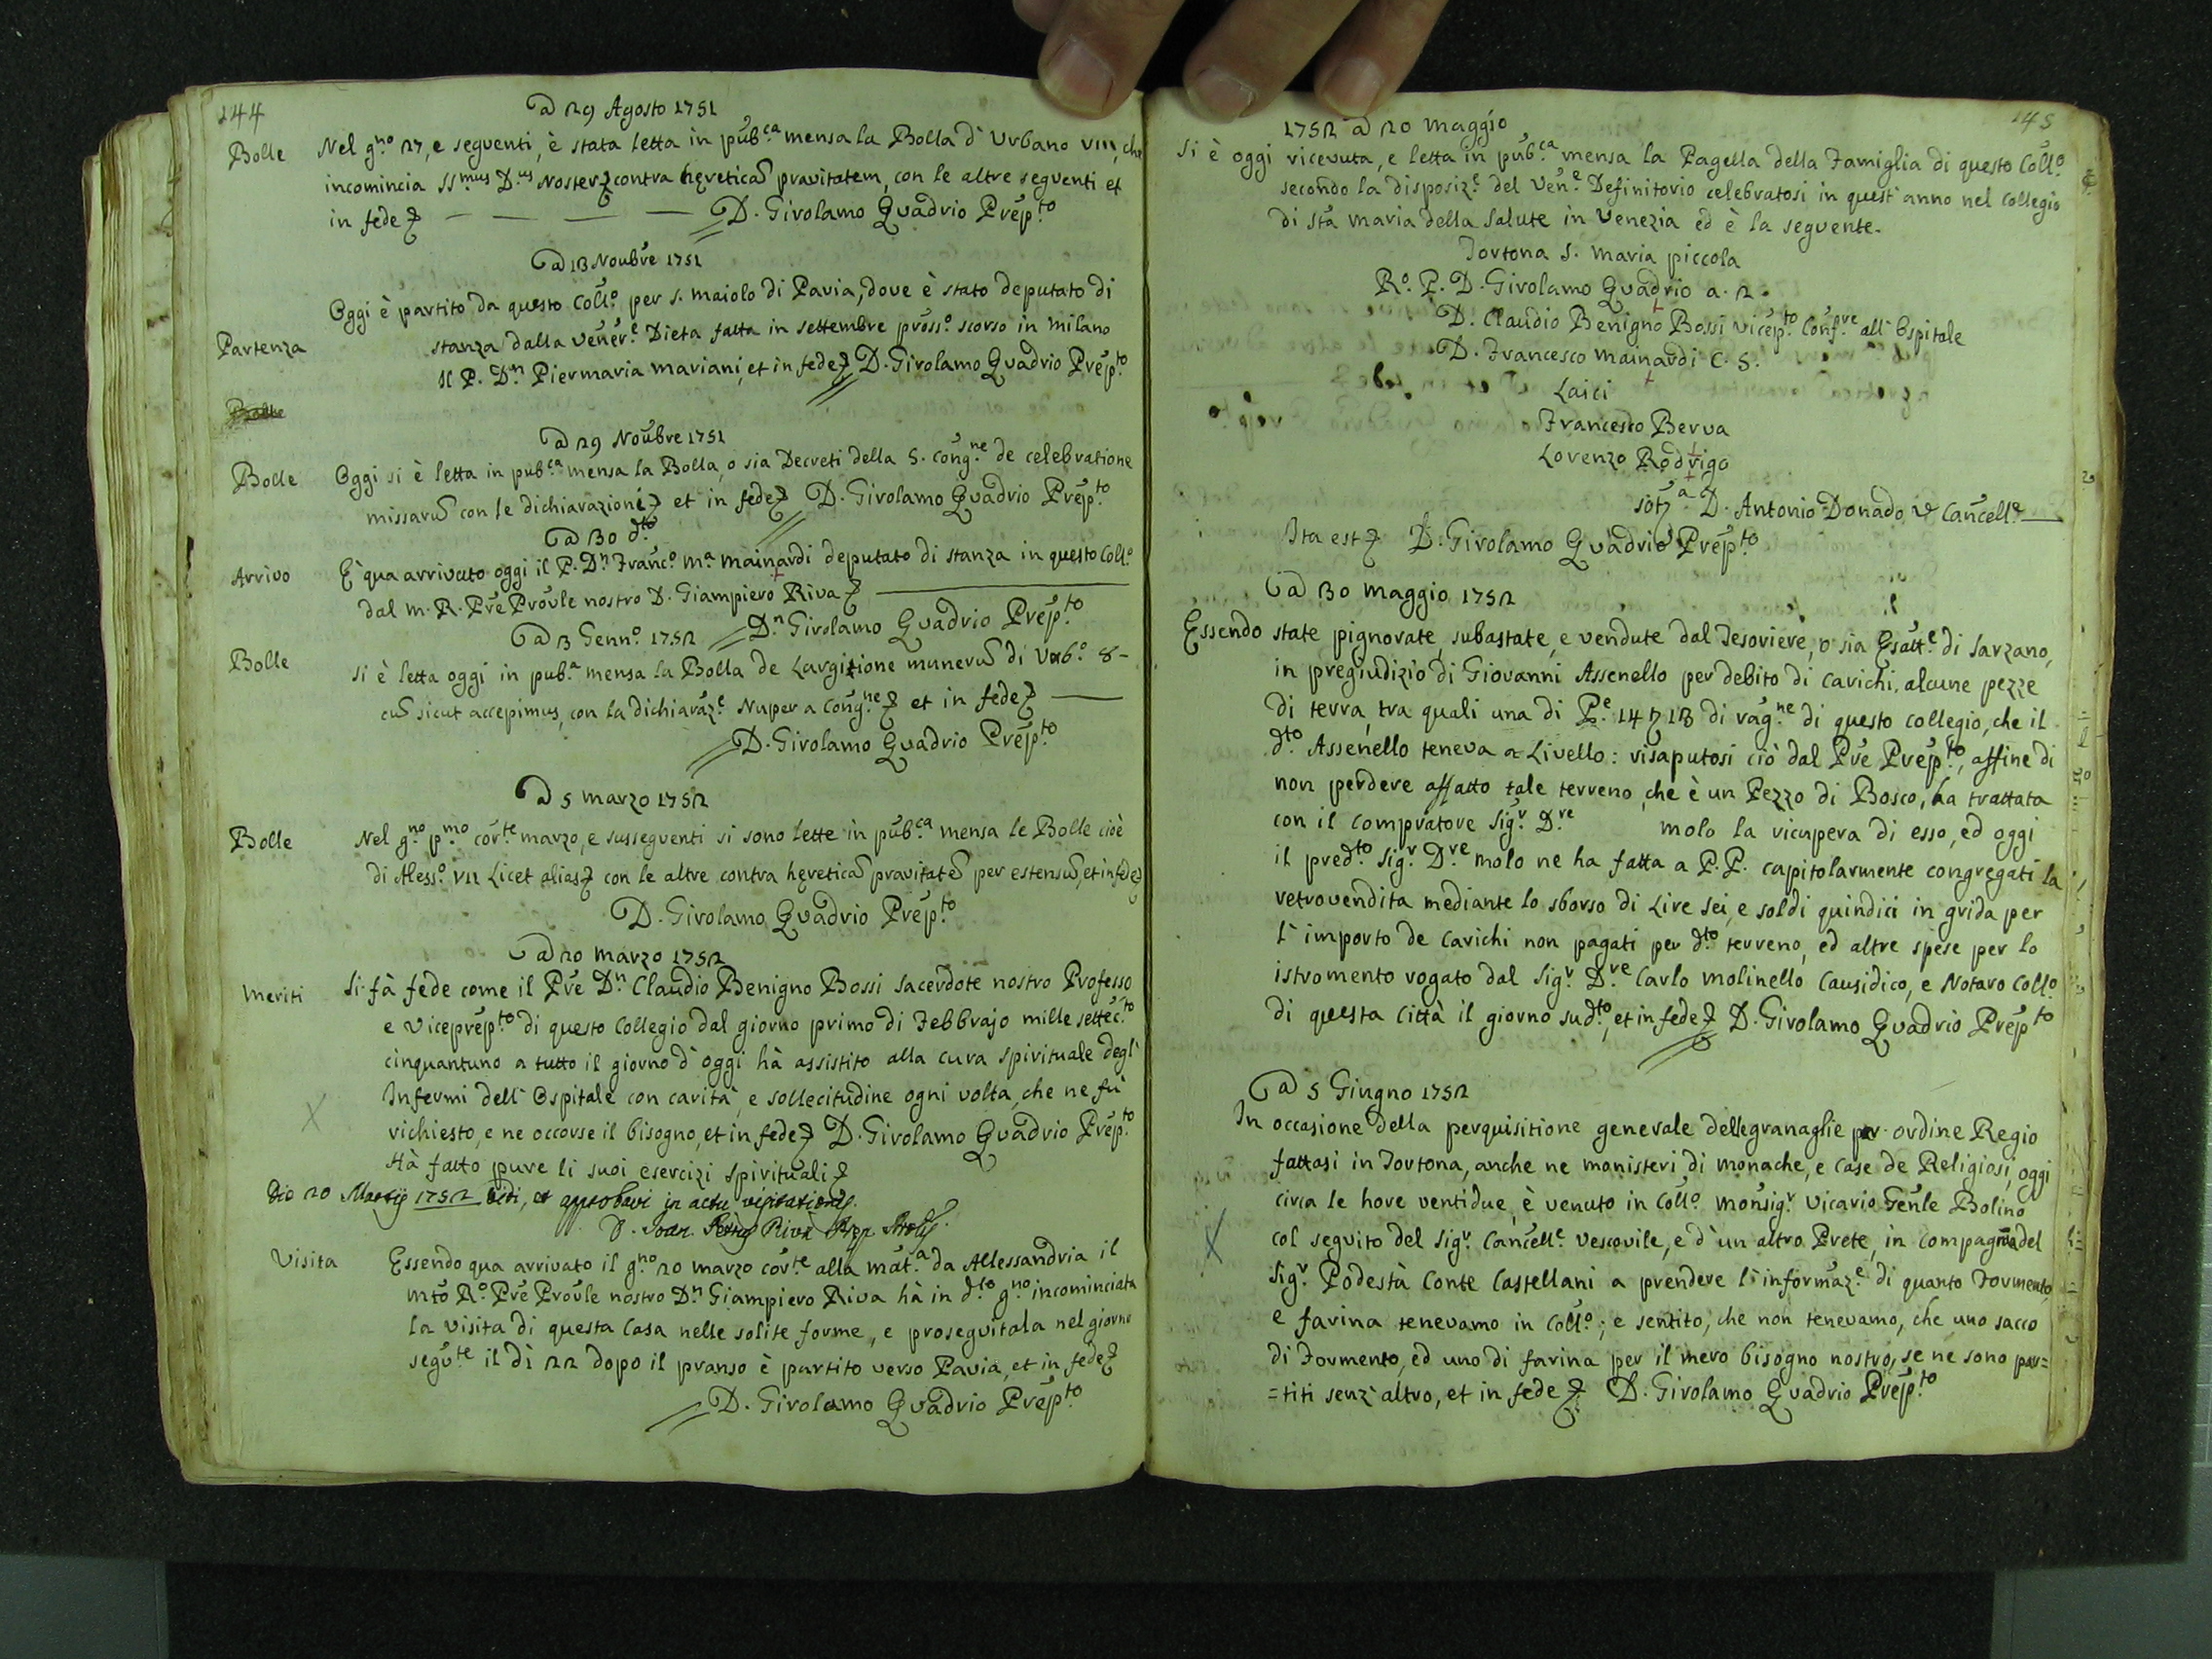 144
A 29 Agosto 1751
Bolle Nel g.no 27, e seguenti, è stata letta in pub.ca mensa la Bolla d'Urbano VIII, che
incomincia SS.mus D.us Noster contra hęreticã pravitatem, con le altre seguenti et
in fede D. Girolamo Quadrio Prep.to
A 13 Noubre 1751
Oggi è partito da questo Coll.o per S. Maiolo di Pavia, dove è stato deputato di
Partenza stanza dalla vener.e Dieta fatta in settembre pross.o scorso in Milano
Il P. D.n Piermaria Mariani, et in fede D. Girolamo Quadrio Prep.to
Bolle
A 29 Noubre 1751
Bolle Oggi si è letta in pub.ca mensa la Bolla, o sia Decreti della S. Cong.ne de celebratione
missarũ con le dichiarazioni et in fede D. Girolamo Quadrio Prep.to
A 30 d.to
Arrivo E' qua arrivato oggi il P. D.n Franc.o M.a Mainardi deputato di stanza in questo Coll.o
dal M. R. Pre Proule nostro D. Giampiero Riva
D.n Girolamo Quadrio Prep.to
A 3 Genn.o 1752
Bolle si è letta oggi in pub.a mensa la Bolla de Largitione munerũ di Urb.o 8
cũ sicut accepimus, con la dichiaraz.e Nuper a Cong.ne et in fede
D. Girolamo Quadrio Prep.to
A 5 marzo 1752
Bolle Nel g.no p.mo cor.te marzo, e susseguenti si sono lette in pub.ca mensa le Bolle cioè
di Aless.o VII Licet alias con le altre contra hęreticã pravitatẽ per estensũ, et in fede
D. Girolamo Quadrio Prep.to
A 20 marzo 1752
Meriti Si fà fede come il Pre D.n Claudio Benigno Bossi sacerdote nostro Professo
e Viceprep.to di questo Collegio dal giorno primo di Febbrajo mille settec.to
cinquantuno a tutto il giorno d'oggi hà assistito alla cura spirituale degl'
Infermi dell'Ospitale con carità, e sollecitudine ogni volta, che ne fù
richiesto, e ne occorse il bisogno, et in fede D. Girolamo Quadrio Prep.to
Hà fatto pure li suoi esercizi spirituali
Die 20 Martij 1752 vidi, et approbavi in actu visitationis.
D. Joan. Petrus Riva Prep. Prolis.
Visita Essendo qua arrivato il g.no 20 marzo cor.te alla mat.a da Allessandria il
mto R.o Pre Proule nostro D.n Giampiero Riva hà in d.to g.no incominciata
la visita di questa Casa nelle solite forme, e proseguitala nel giorno
segu.te il dì 22 dopo il pranso è partito verso Pavia, et in fede
D. Girolamo Quadrio Prep.to
145
1752 A 20 Maggio
Si è oggi ricevuta, e letta in pub.ca mensa la Pagella della Famiglia di questo Coll.o
secondo la disposiz.e del Ven.e Definitorio celebratosi in quest'anno nel Collegio
di Sta Maria della Salute in Venezia ed è la seguente.
Tortona S. Maria piccola
R.o P. D. Girolamo Quadrio a. 2.
D. Claudio Benigno Bossi vicep.to Conf.re all'Ospitale
D. Francesco Mainardi C. S.
Laici
Francesco Berva
Lorenzo Rodrigo
D. Antonio Donado Cancell.e
Ita est D. Girolamo Quadrio Prep.to
A 30 Maggio 1752
Essendo state pignorate, subastate, e vendute dal Tesoriere, o sia Esatt.e di Sarzano,
in pregiudizio di Giovanni Assenello per debito di carichi, alcune pezze
di terra, tra quali una di P.e 14 13 di rag.ne di questo collegio, che il
d.to Assenello teneva a Livello: risaputosi ciò dal Pre Prep.to, affine di
non perdere affatto tale terreno, che è un Pezzo di Bosco, ha trattata
con il compratore Sig.r D.re Molo la ricupera di esso, ed oggi
il pred.to Sig.r D.re Molo ne ha fatta a P.P. capitolarmente congregati la
retrovendita mediante lo sborso di Lire sei, e soldi quindici in grida per
l'importo de Carichi non pagati per d.to terreno, ed altre spese per lo
istromento rogato dal Sig.r D.re Carlo Molinello Causidico, e Notaro Coll.o
di questa Città il giorno sud.to, et in fede D. Girolamo Quadrio Prep.to
A 5 Giugno 1752
In occasione della perquisitione generale delle granaglie per ordine Regio
fattasi in Tortona, anche ne monisteri di monache, e case de Religiosi, oggi
circa le hore ventidue, è venuto in Coll.o Monsig.r Vicario Genle Bolino
col seguito del Sig.r Cancell.e Vescovile, e d'un altro Prete, in compagnia del
Sig.r Podestà Conte Castellani a prendere l'informaz.e di quanto Formento,
e farina tenevamo in Coll.o; e sentito, che non tenevamo, che uno sacco
di Formento, ed uno di farina per il mero bisogno nostro, se ne sono par=
=titi senz'altro, et in fede D. Girolamo Quadrio Prep.to